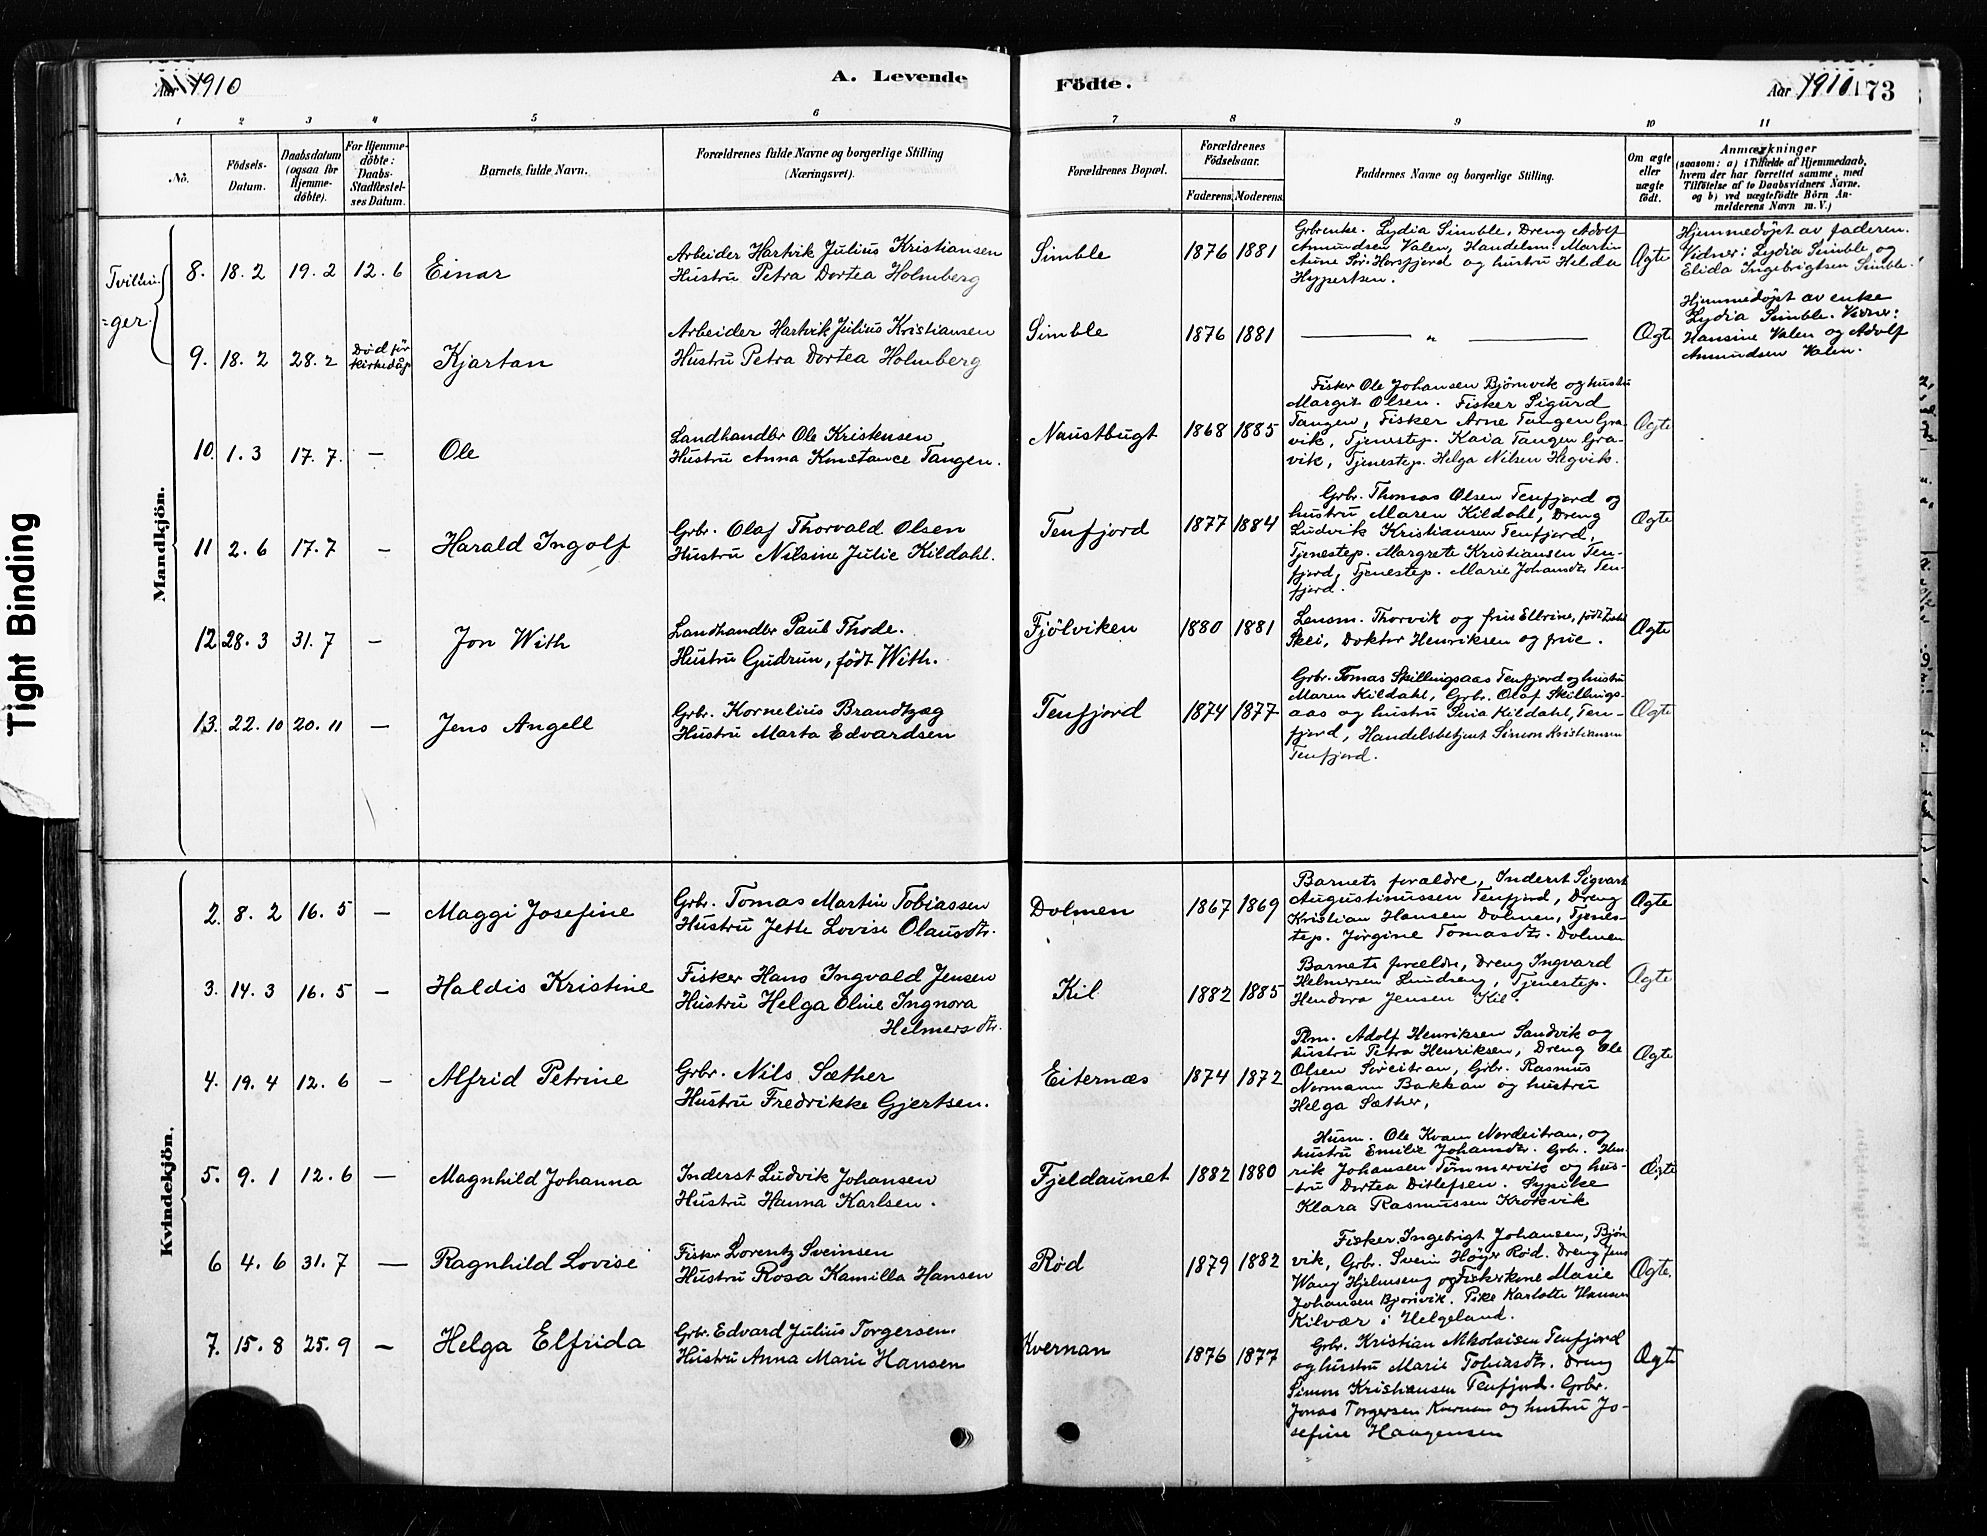 Aar 1910
A. Levende
Fødte.
Aar 1910
173
1 2 3 4 5 6 7 8 9 10 11
No.
Fødsels-
Datum.
Daabsdatum
(ogsaa for
Hjemme-
døbte).
For Hjemme-
døbte:
Daabs-
Stadfæstel-
ses Datum.
Barnets fulde Navn.
Forældrenes fulde Navne og borgerlige Stilling
(Næringsvei).
Forældrenes Bopæl.
Forældrenes
Fødselsaar.
Faderens. Moderens.
Faddernes Navne og borgerlige Stilling.
Om ægte
eller
uægte
født.
Anmærkninger
(saasom: a) i Tilfælde af Hjemmedaab,
hvem der har forrettet samme, med
Tilføielse af to Daabsvidners Navne,
og b) ved uægtefødte Børn An-
melderens Navn m. V.)
Tight Binding
Mandkjøn.
Tvillin-
=ger.
8. 18.2 19.2 12.6 Einar
Arbeider Hartvik Julius Kristiansen
Hustru Petra Dortea Holmberg
Simble 1876 1881
Grbrenke. Lydia Simble, Dreng Adolf
Amundsen Valen, Handelm. Martin
Aune Sør-Horsfjord og hustru Helda
Hyppertsen.
Ægte
Hjemmedøpt av faderen.
Vidner: Lydia Simble og
Elida Ingebrigtsen Simble.
9. 18.2 28.2 Død før
kirkedåp
Kjartan
Arbeider Hartvik Julius Kristiansen
Hustru Petra Dortea Holmberg
Simble 1876 1881 — „ — Ægte
Hjemmedøpt av enke
Lydia Simble. Vidner:
Hansine Valen og Adolf
Amundsen Valen.
10. 1.3 17.7. — Ole
Landhandler Ole Kristensen
Hustru Anna Konstance Tangen.
Naustbugt 1868 1885
Fisker Ole Johansen Bjørnvik og hustru
Margit Olsen. Fisker Sigurd
Tangen, Fisker Arne Tangen Gra-
vik, Tjenestep. Kaia Tangen Gra-
vik, Tjenestep. Helga Nilsen Hegvik.
Ægte
11 2.6 17.7 — Harald Ingolf
Grbr. Olaf Thorvald Olsen
Hustru Nilsine Julie Kildahl.
Tenfjord 1877 1884
Grbr. Thomas Olsen Tenfjord og
hustru Maren Kildahl, Dreng
Ludvik Kristiansen Tenfjord,
Tjenestep. Margrete Kristiansen Ten-
fjord, Tjenestep. Marie Johansdtr Ten-
fjord.
Ægte
12 28.3 31.7 — Jon With
Landhandler Paul Thode.
Hustru Gudrun, født With.
Fjölviken 1880 1881
Lensm. Thorvik og frue Ellrine, født
Skei, Doktor Henriksen og frue.
Ægte
13. 22.10 20.11 — Jens Angell
Grbr. Kornelius Brandtzæg
Hustru Marta Edvardsen
Tenfjord 1874 1877
Grbr. Tomas Skillingsaas Tenfjord og hustru
Maren Kildahl, Grbr. Olaf Skillings-
aas og hustru Sina Kildahl, Ten-
fjord, Handelsbetjent Simon Kristiansen
Tenfjord.
Ægte
Kvindekjøn.
2. 8.2 16.5 — Maggi Josefine
Grbr. Tomas Martin Tobiassen
Hustru Jette Lovise Olausdtr.
Dolmen 1867 1869
Barnets forældre, Inderst Sigvart
Augustinussen Tenfjord, Dreng
Kristian Hansen Dolmen, Tjenes-
tep. Jørgine Tomasdtr. Dolmen
Ægte
3. 14.3 16.5 — Haldis Kristine
Fisker Hans Ingvald Jensen
Hustru Helga Oline Ingnora
Helmersdtr.
Kil 1882 1885
Barnets forældre, Dreng Ingvard
Helmersen Lundseng, Tjenestep.
Hendora Jensen Kil.
Ægte
4. 19.4 12.6 — Alfrid Petrine
Grbr. Nils Sæther
Hustru Fredrikke Gjertsen.
Eiternæs 1874 1872
Plm. Adolf Henriksen Sandvik og
hustru Petra Henriksen, Dreng Ole
Olsen Søreitran, Grbr. Rasmus
Normann Bakkan og hustru
Helga Sæther,
Ægte
5. 9.1 12.6 — Magnhild Johanna
Inderst Ludvik Johansen
Hustru Hanna Karlsen.
Fjeldaunet 1882 1880
Husm. Ole Kvam Nordeitran, og
hustru Emilie Johansdtr. Grbr. Hen-
rik Johansen Tømmervik og hus-
-tru Dortea Ditlefsen. Sypike
Klara Rasmussen Krokvik
Ægte
6 4.6 31.7 — Ragnhild Lovise
Fisker Lorentz Sveinsen
Hustru Rosa Kamilla Hansen
Rød 1879 1882
Fisker. Ingebrigt Johansen, Bjøn
vik, Grbr. Svein Høyer Rød. Dreng Jens
Wang Hjelmseng og Fiskerkone Marie
Johansen Bjørnvik. Pike Karlotte Hansen
Kilvær i Helgeland.
Ægte.
7. 15.8 25.9 — Helga Elfrida
Grbr. Edvard Julius Torgersen.
Hustru Anna Marie Hansen
Kvernan 1876 1877
Grbr. Kristian Nikolaisen Tenfjord
og hustru Marie Tobiasdtr. Dreng
Simon Kristiansen Tenfjord. Grbr.
Jonas Torgersen Kvernan og hustru Jo-
sefine Haagensen
Ægte